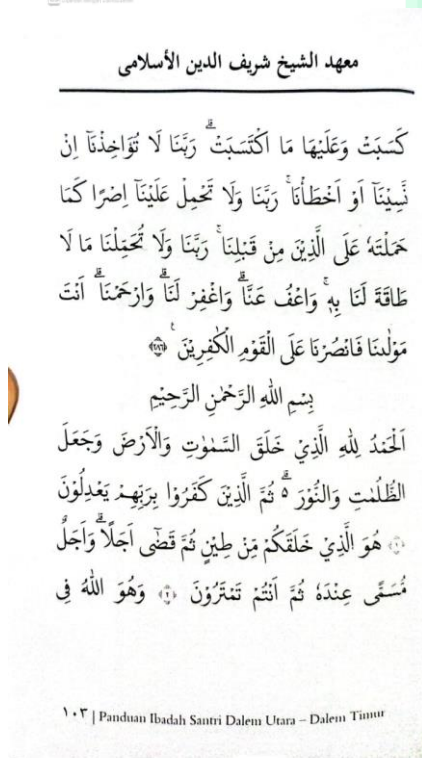 معهد الشيخ شريف الدين الأسلامى
كَسَبَتْ وَعَلَيْهَا مَا اكْتَسَبَتْ ۗ رَبَّنَا لَا تُؤَاخِذْنَآ اِنْ
نَّسِيْنَآ اَوْ اَخْطَأْنَا ۚ رَبَّنَا وَلَا تَحْمِلْ عَلَيْنَآ اِصْرًا كَمَا
حَمَلْتَهٗ عَلَى الَّذِيْنَ مِنْ قَبْلِنَا ۚ رَبَّنَا وَلَا تُحَمِّلْنَا مَا لَا
طَاقَةَ لَنَا بِهٖ ۚ وَاعْفُ عَنَّا ۗ وَاغْفِرْ لَنَا ۗ وَارْحَمْنَا ۗ اَنْتَ
مَوْلٰىنَا فَانْصُرْنَا عَلَى الْقَوْمِ الْكٰفِرِيْنَ ࣖ ﴿٢٨٦﴾
بِسْمِ اللهِ الرَّحْمٰنِ الرَّحِيْمِ
اَلْحَمْدُ لِلّٰهِ الَّذِيْ خَلَقَ السَّمٰوٰتِ وَالْاَرْضَ وَجَعَلَ
الظُّلُمٰتِ وَالنُّوْرَ ۗ ە ثُمَّ الَّذِيْنَ كَفَرُوْا بِرَبِّهِمْ يَعْدِلُوْنَ
﴿١﴾ هُوَ الَّذِيْ خَلَقَكُمْ مِّنْ طِيْنٍ ثُمَّ قَضٰٓى اَجَلًا ۗ وَاَجَلٌ
مُّسَمًّى عِنْدَهٗ ثُمَّ اَنْتُمْ تَمْتَرُوْنَ ﴿٢﴾ وَهُوَ اللهُ فِى
١٠٣ | Panduan Ibadah Santri Dalem Utara – Dalem Timur